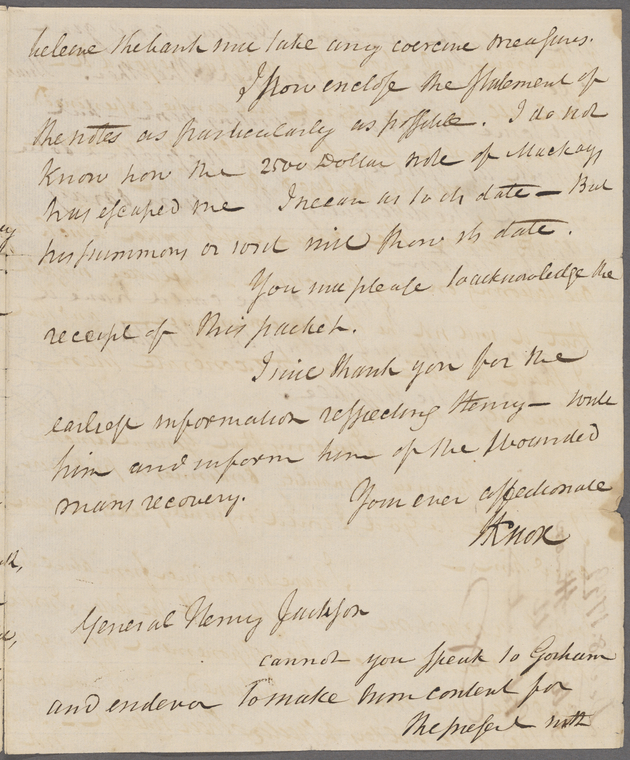 beleive the bank will take any coercive measures.
I now enclose the Statement of
the notes as particularly as possible. I do not
Know how the 2500 Dollar note of Mackays
has escaped me I mean as to its date — But
his summons or writ will show its date.
You will please to acknowledge the
receipt of this packet.
I will thank you for the
earliest information respecting Henry — write
him and inform him of the Wounded
mans recovery. Your ever affectionate
HKnox
General Henry Jackson
cannot you speak to Gorham
and endevor to make him content for
the present